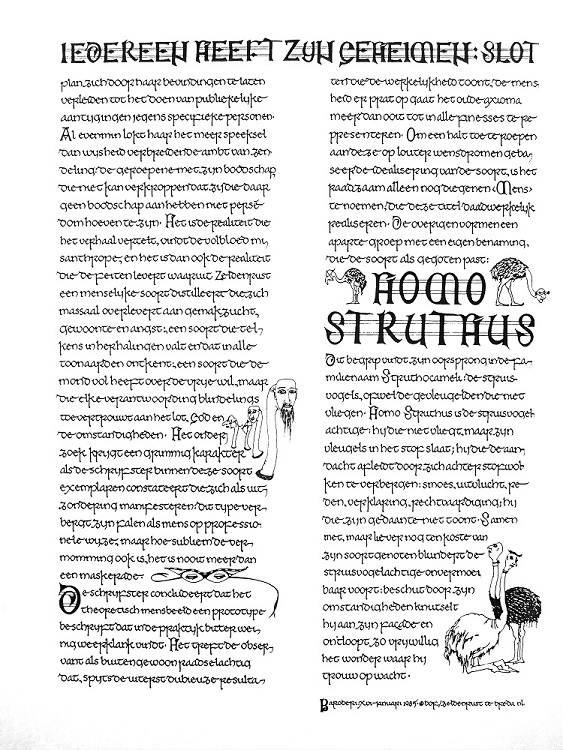 IEDEREEN HEEFT ZIJN GEHEIMEN: SLOT
plan zich door haar bevindingen te laten
verleiden tot het doen van publiekelijke
aantijgingen jegens specifieke personen.
Al evenmin lokt haar het meer speeksel
dan wijsheid verbreidende ambt van zen-
deling: de geroepene met zijn boodschap
die niet kan verkroppen dat zij die daar
geen boodschap aan hebben niet persé
dom hoeven te zijn. Het is de realiteit die
het verhaal vertelt, vindt de volbloed mi-
santhrope, en het is dan ook de realiteit
die de feiten levert waaruit Zeldenrust
een menselijke soort distilleert die zich
massaal overlevert aan gemakzucht,
gewoonte en angst, een soort die tel-
kens in herhalingen valt en dat in alle
toonaarden ontkent, een soort die de
mond vol heeft over de vrije wil, maar
die elke verantwoording blindelings
toevertrouwt aan het lot, God en
de omstandigheden. Het onder-
zoek krijgt een grimmig karakter
als de schrijfster binnen deze soort
exemplaren constateert die zich als uit-
zondering manifesteren: dit type ver-
bergt zijn falen als mens op professio-
nele wijze, maar hoe subliem de ver-
momming ook is, het is nooit meer dan
een maskerade.
De schrijfster concludeert dat het
theoretisch mensbeeld een prototype
beschrijft dat in de praktijk bitter wei-
nig weerklank vindt. Het treft de obser-
vant als buitengewoon raadselachtig
dat, spijts de uiterst dubieuze resulta-
ten die de werkelijkheid toont, de mens-
heid er prat op gaat het oude axioma
meer dan ooit tot in alle finesses te re-
presenteren. Om een halt toe te roepen
aan deze op louter wensdromen geba-
seerde idealisering van de soort, is het
raadzaam alleen nog diegenen ‹Mens›
te noemen, die deze titel daadwerkelijk
realiseren. De overigen vormen een
aparte groep met een eigen benaming,
die de soort als gegoten past:
HOMO
STRUTHUS
Dit begrip vindt zijn oorsprong in de fa-
milienaam Struthocameli: de struis-
vogels, ofwel de gevleugelden die niet
vliegen. Homo Struthus is de struisvogel-
achtige: hij die niet vliegt, maar zijn
vleugels in het stof slaat; hij die de aan-
dacht afleidt door zich achter stofwol-
ken te verbergen: smoes, uitvlucht, re-
den, verklaring, rechtvaardiging; hij
die zijn gedaante niet toont. Samen
met, maar liever nog ten koste van
zijn soortgenoten blundert de
struisvogelachtige onvermoei-
baar voort: beschut door zijn
omstandigheden knutselt
hij aan zijn façade en
ontloopt zo vrijwillig
het wonder waar hij
trouw op wacht.